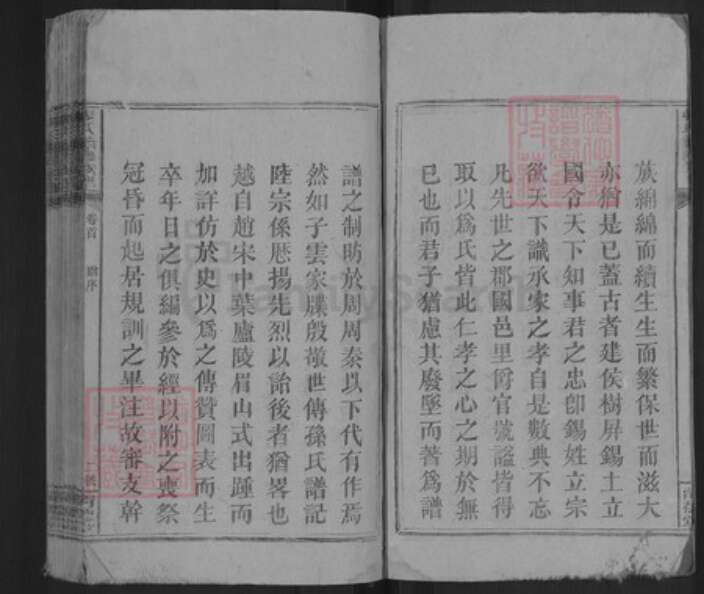 族綿綿而續生生而繁保世而滋大
亦猶是已蓋古者建侯樹屏錫土立
國令天下知事君之忠卽錫姓立宗
欲天下識承家之孝自是數典不忘
凡先世之郡國邑里爵官號謚皆得
取以爲氏皆此仁孝之心之期於無
已也而君子猶慮其廢墜而著爲譜
譜之制昉於周周秦以下代有作焉
然如子雲家牒殷敬世傳孫氏譜記
陸宗係歷揚先烈以詒後者猶畧也
越自趙宋中葉廬陵眉山式出踵而
加詳仿於史以爲之傳贊圖表而生
卒年日之俱編參於經以附之喪祭
冠昏而起居規訓之畢注故審支幹
卷首 序